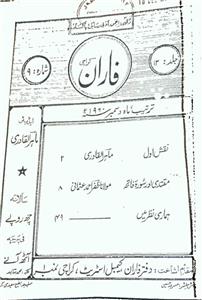 جلد: ۱۲
فاران
کراچی
شمارہ: ۹
ترتیب ماہ دسمبر ۱۹۶۰ء
ایڈیٹر
ماہر القادری
نقشِ اول
ماہر القادری
۲
مقتدی اور سورۂ فاتحہ
مولانا ظفر احمد عثمانی
۸
ہماری نظر میں
۴۹
چھ روپے
آٹھ آنے
مقام اشاعت: دفتر فاران کیمبل اسٹریٹ، کراچی نمبر ۱